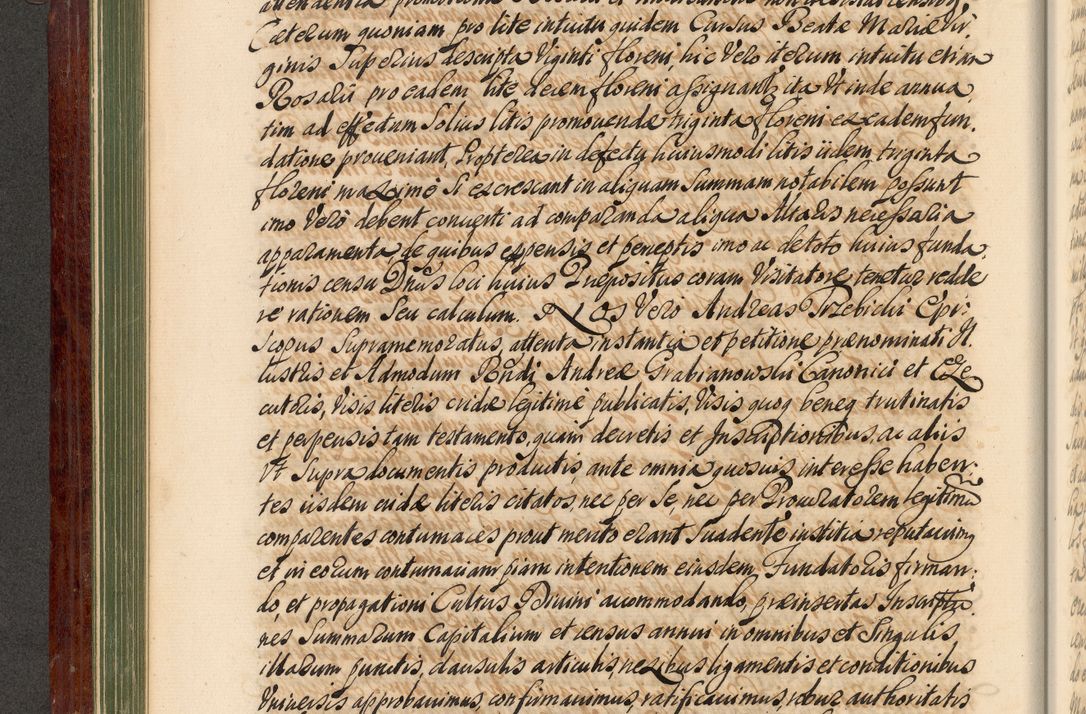 Cæterum quoniam pro lite intuitu quidem Cursus Beatæ Mariæ Vir-
ginis Superius descripta Viginti floreni hic Vero iterum intuitu etiam
Rosarii pro eadem lite decem floreni assignantur ita Vt inde annua
tim ad effectum Solius litis promouendæ triginta floreni ex eadem fun-
datione proueniant, Propterea in defectu huiusmodi litis iidem triginta
floreni maximè Si excrescant in aliquam Summam notabilem possunt
imo Verò debent conuerti ad comparanda aliqua Altaris necessaria
apparamenta de quibus expensis et perceptis imo ac de toto huius funda
tionis censu Dnus loci huius Præpositus coram Visitatore tenetur redde
re rationem Seu calculum. Nos Verò Andreas Trzebicki Epi-
scopus Supramemoratus, attenta instantia et petitione prænominati Il
lustris et Admodum Rndi Andreæ Grabianowski Canonici et Exe
cutoris, Visis literis cridæ legitimè publicatis, Visis quoq beneq trutinatis
et perpensis tam testamento, quàm decretis et Inscriptionibus, ac aliis
Vt Supra documentis productis, ante omnia quosuis interesse haben-
tes iisdem cridæ literis citatos, nec per Se, nec per Procuratorem legitimè
comparentes contumaces prout merito erant Suadente iustitia reputauimq
et in eorum contumaciam piam intentionem eiusdem Fundatoris firman-
do, et propagationi Cultus Diuini accommodando, præinsertas Inscriptio
nes Summarum Capitalium et census annui in omnibus et Singulis
illarum punctis, clausulis articulis, nexibus ligamentis et conditionibus
Vniuersis approbauimus, confirmauimus, ratificauimus, robur authoritatis